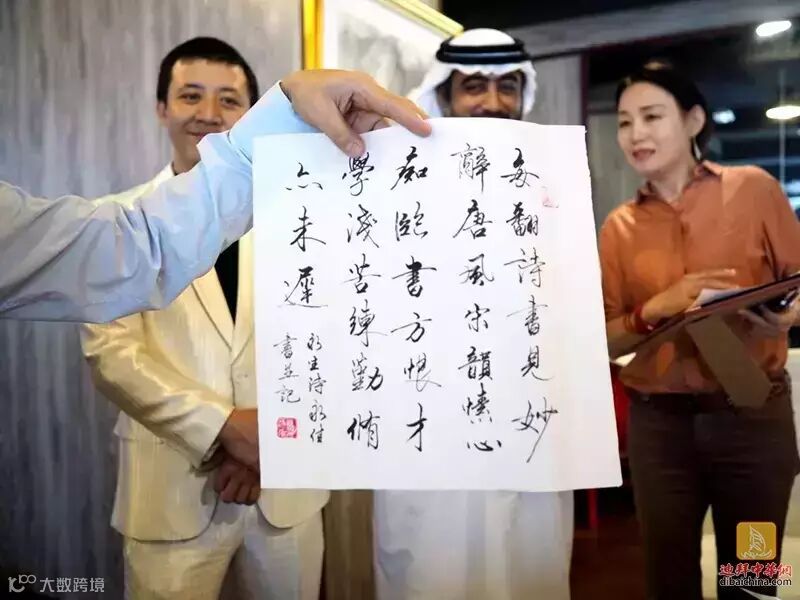 每翻詩書見妙
辭唐風宋韻愫心
痴臨書方恨才
學淺苦練勤脩
亦未遲
永生詩永佳
書並記
大数跨境
迪拜中華網
dibaichina.com